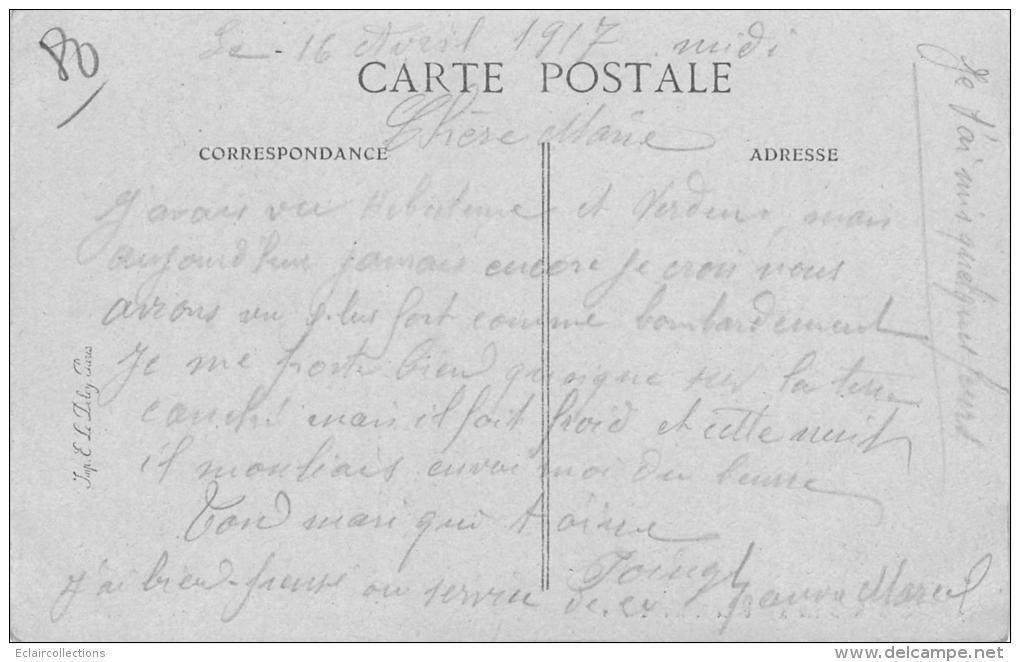 80
Le 16 Avril 1917 midi
CARTE POSTALE
Chère Marie
CORRESPONDANCE
ADRESSE
J'avais vu Hebuterne et Verdun, mais
aujourd'hui jamais encore je crois nous
avions vu plus fort comme bombardement
Je me porte bien quoique sur la terre
couché mais il fait froid et cette nuit
il mouliais envoi moi du beurre
Ton mari qui t'aime
J'ai bien pensé au service de ce pauvre Marcel
Je t'ai mis quelques fleurs
Imp. E. Le Deley Paris
Eclaircollections
www.delcampe.net